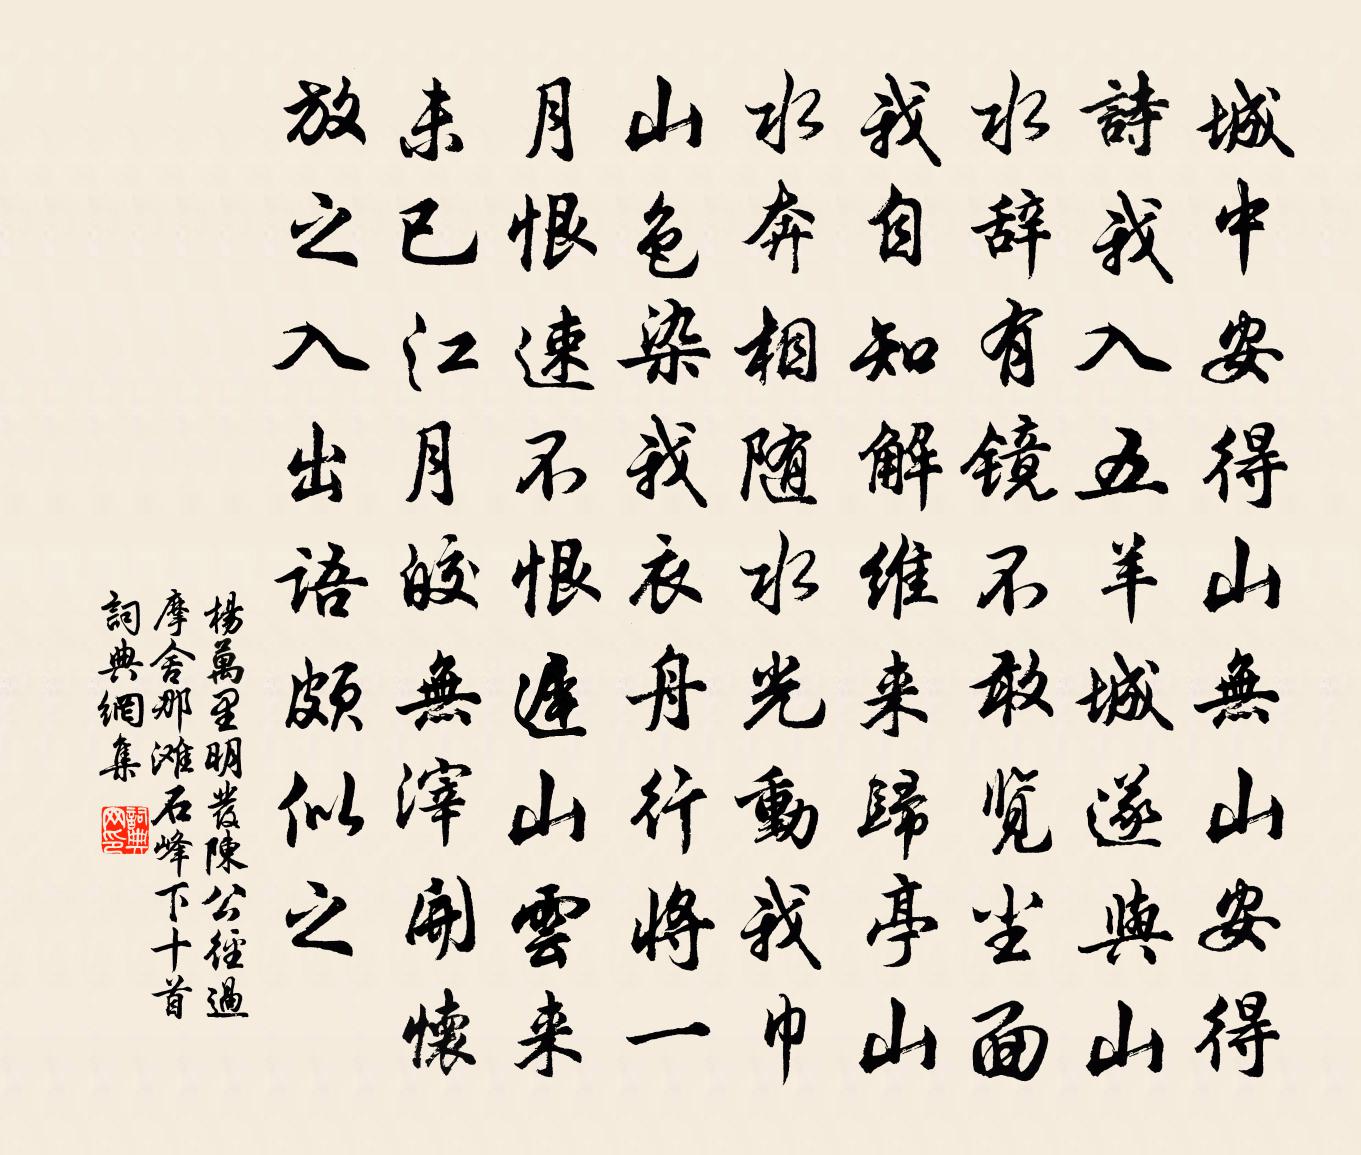 城中安得山無山安得
詩我入五羊城遂與山
水辞有镜不敢览尘面
我自知解维来歸亭山
水奔相随水光動我巾
山色染我衣舟行将一
月恨速不恨遲山雲来
未已江月皎無滓開懷
放之入出語頗似之
楊萬里明發陳公徑過
摩舍那滩石峰下十首
詞典網集
詞典网印